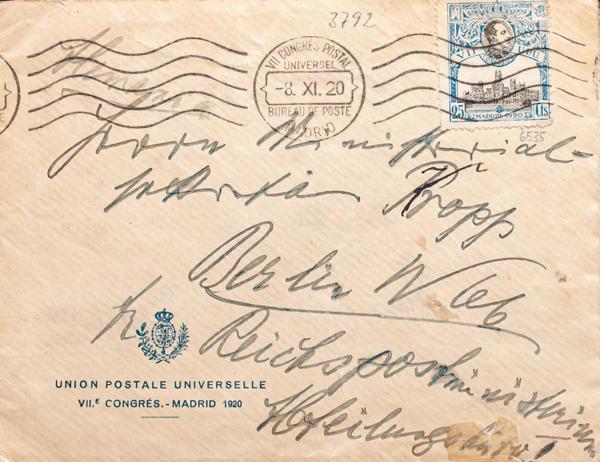 3792
VII CONGRÈS POSTAL
UNIVERSEL
-8. XI. 20
BUREAU DE POSTE
MADRID
25 CTS
MADRID 1920
6535
Herrn Ministerial-
sekretär Kropp
Berlin W 66
Reichspostministerium
Abteilungsbüro I
UNION POSTALE UNIVERSELLE
VII.E CONGRÉS.-MADRID 1920